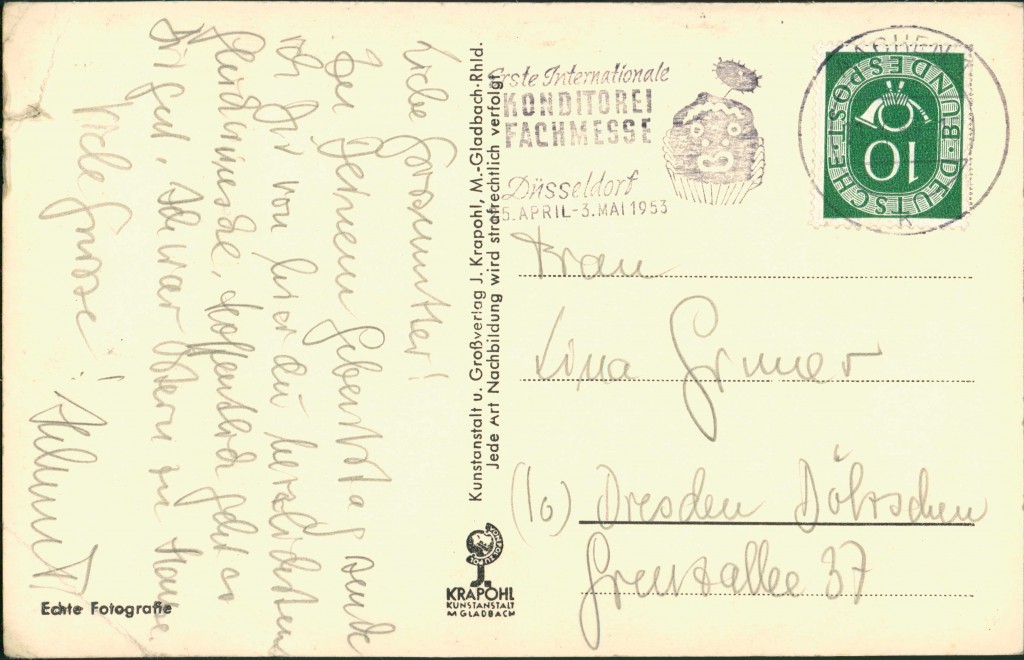 Liebe Grossmutter!
Zu Deinem Geburtstag sende
ich Dir von hier die herzlichsten
Glückwünsche, hoffentlich geht es
Dir gut, ich war Ostern zu Hause.
Viele Grüsse!
Helmut
Echte Fotografie
Kunstanstalt u. Großverlag J. Krapohl, M.-Gladbach-Rhld.
Jede Art Nachbildung wird strafrechtlich verfolgt
KRAPOHL
KUNSTANSTALT
M GLADBACH
Erste Internationale
KONDITOREI
FACHMESSE
Düsseldorf
5. APRIL-3. MAI 1953
AACHEN
K
DEUTSCHE BUNDESPOST
10
Frau
Lina Gruner
(10) Dresden Dölzschen
Grenzallee 37